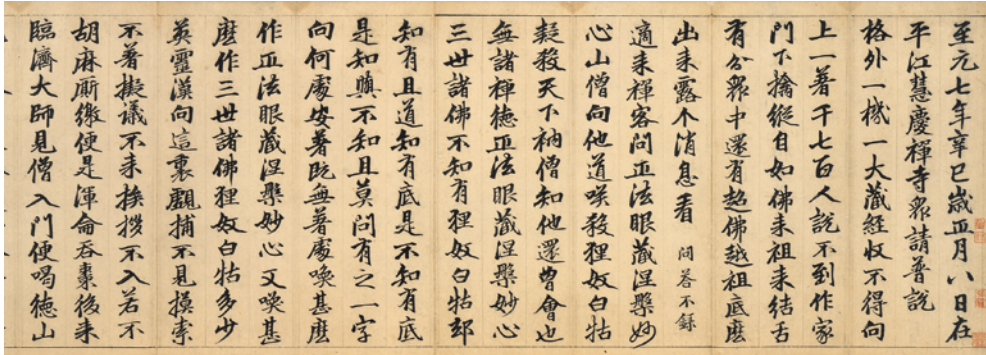 至元七年辛巳歲正月八日在
平江慧慶禪寺衆請普說
格外一機一大藏經收不得向
上一著千七百人說不到作家
門下擒縱自如佛来祖来結舌
有分衆中還有超佛越祖底麽
出来露个消息看 問答不錄
適来禪客問正法眼藏涅槃妙
心山僧向他道唉殺狸奴白牯
疑殺天下衲僧知他還曽會也
無諸禪德正法眼藏涅槃妙心
三世諸佛不知有狸奴白牯却
知有且道知有底是不知有底
是知與不知且莫問有之一字
向何處安著既無著處喚甚麽
作正法眼藏涅槃妙心又喚甚
麽作三世諸佛狸奴白牯多少
英靈漢向這裏覷捕不見摸索
不著擬議不来挨拶不入若不
胡麻厮繳便是渾侖吞棗後来
臨濟大師見僧入門便喝德山